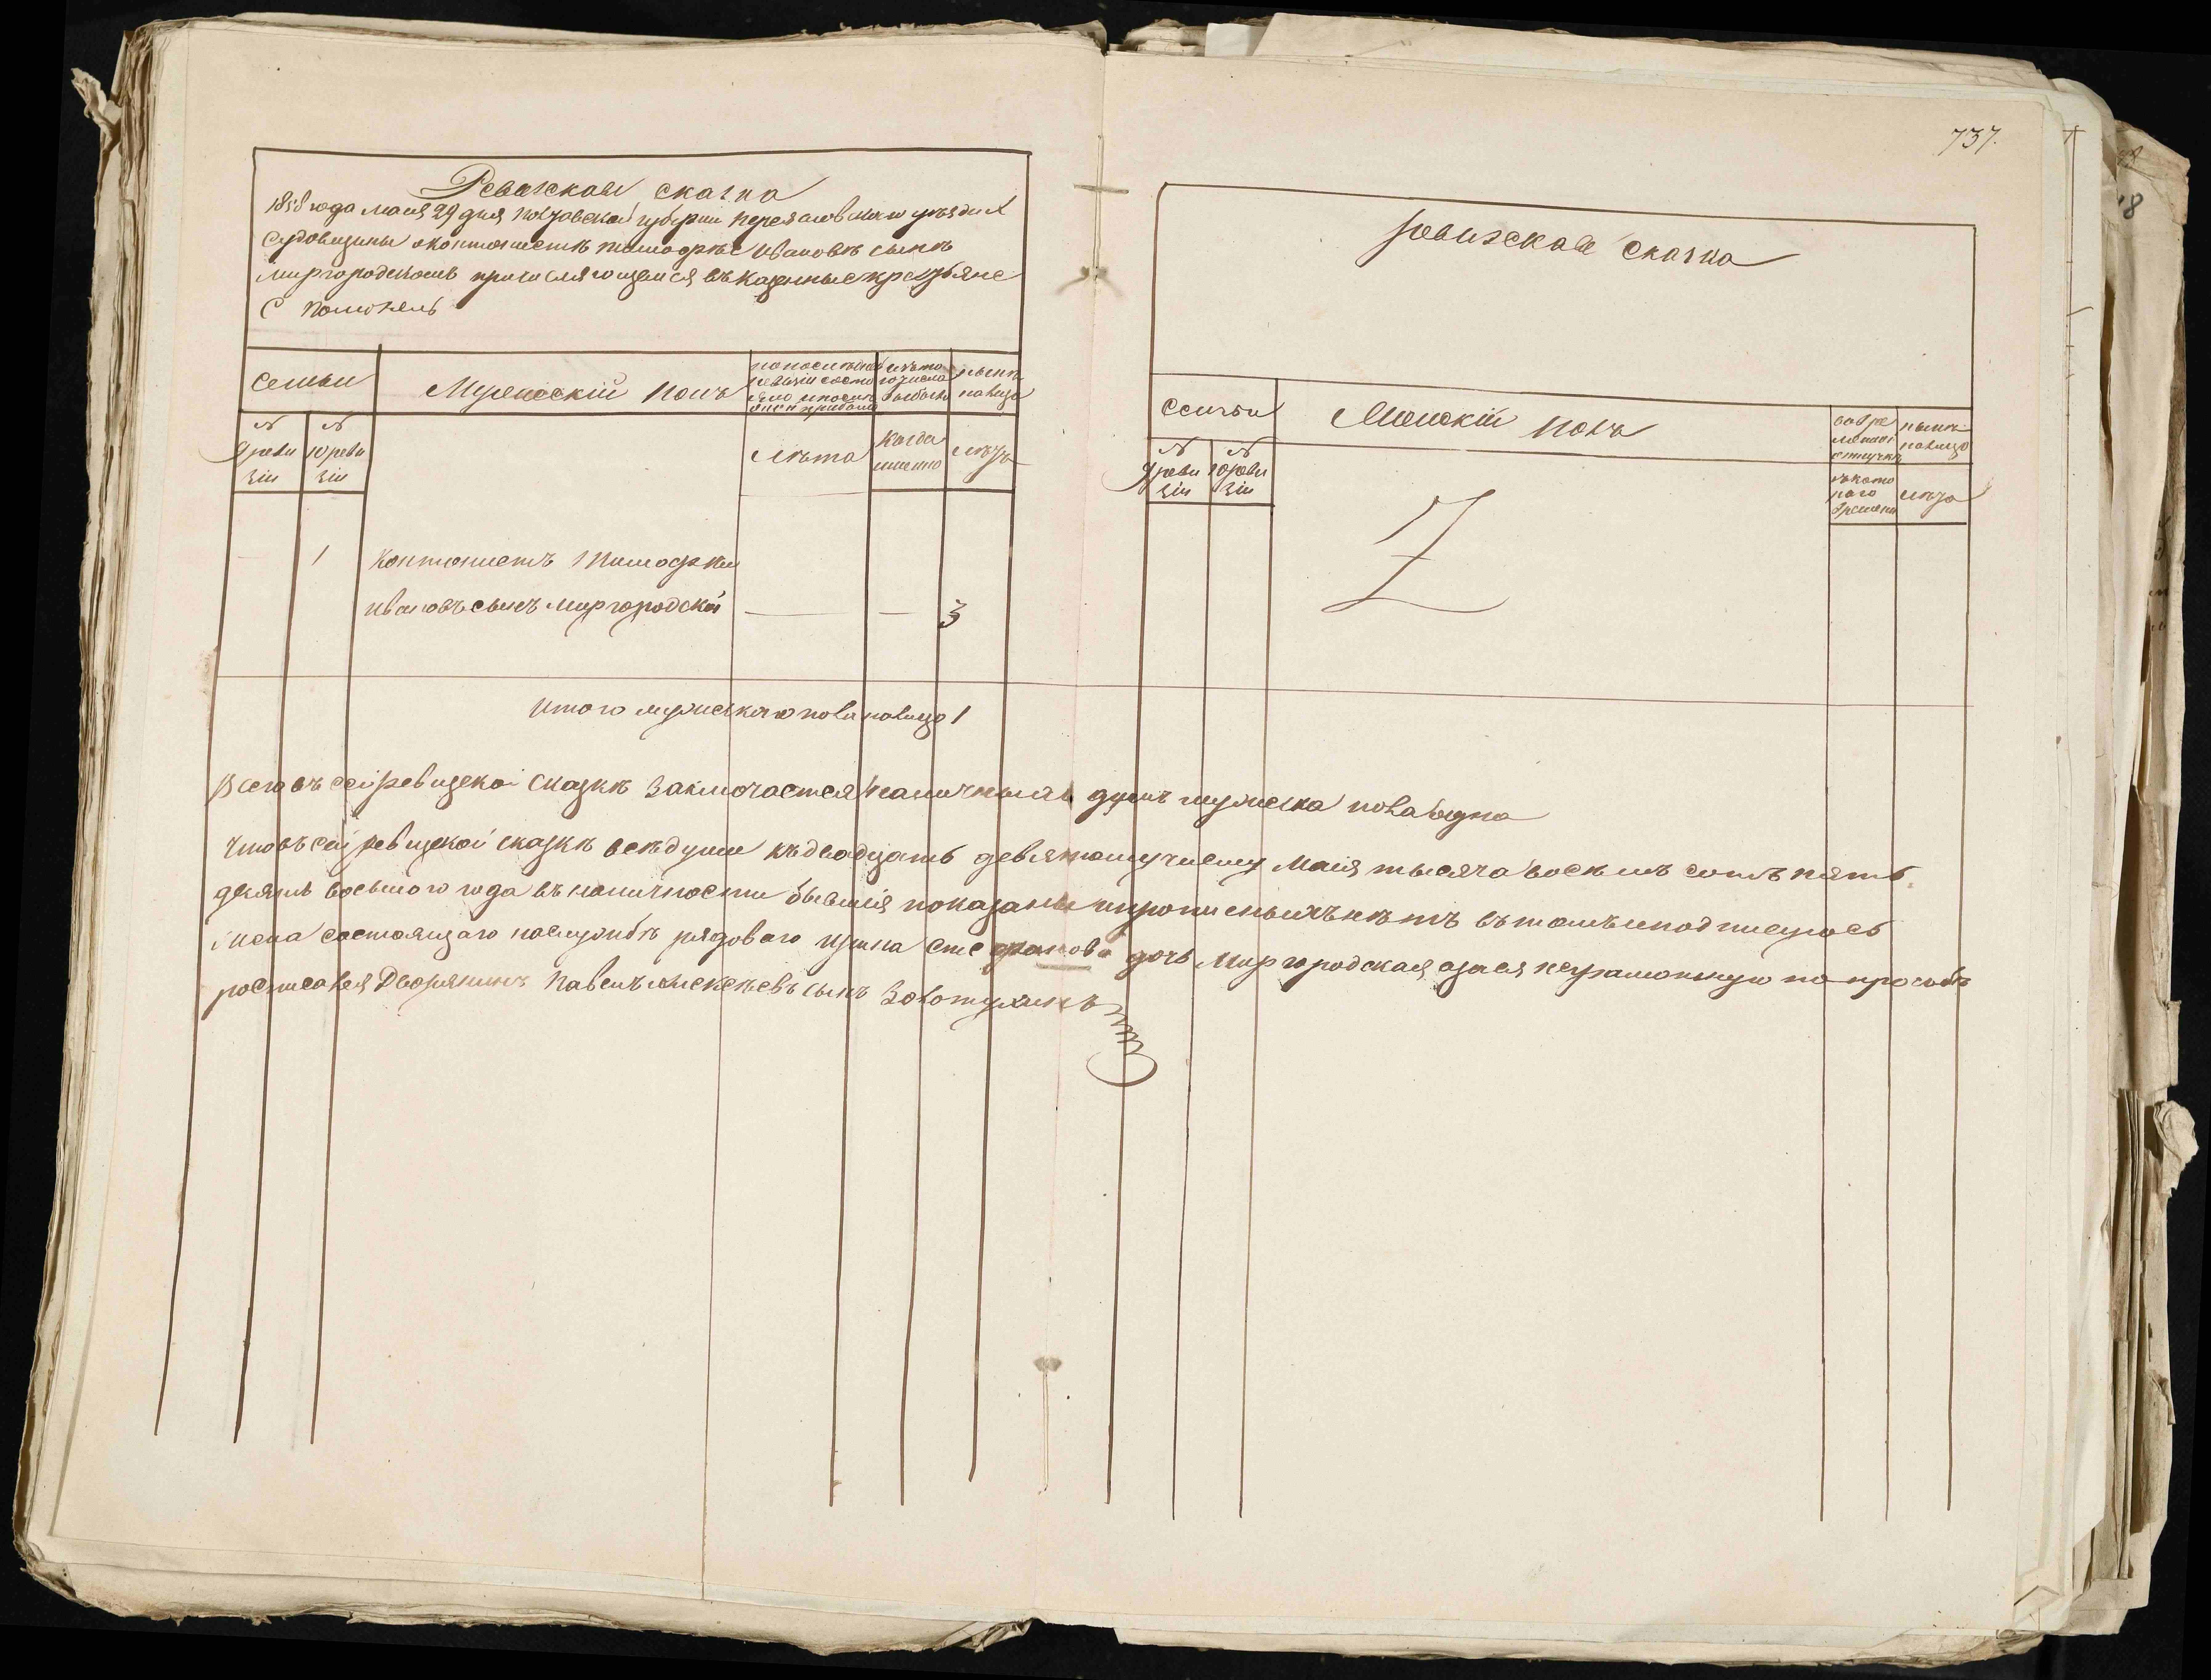 737.
Ревизская сказка
1858 года маія 29 дня Полтавской губерніи Переяславскаго уезда с
Сулодовщины о кантонисте Тимофѣе Ивановѣ сынѣ
Миргородскомъ причисляющемся въ казенные крестьяне
с
семьи
Мужескій полъ
по последней ревизіи состояло и после онсп прибыло
изъ того числа выбыло
нынѣ на лицо
№ 9 ревизіи
№ 10 ревизіи
Лѣта
когда именно
Лѣта
1 Кантонистъ Тимофей
Ивановъ сынъ Миргородской — — 3
Итого мужескаго пола на лицо 1
Ревизская сказка
Семьи
Женскій полъ
во временной отлучкѣ
нынѣ на лицо
№ 9 ревизіи
№ 10 ревизіи
съ котораго времени
Лѣта
Всего въ сей ревизской сказкѣ заключается наличныхъ душъ мужеска пола одна
Что въ сей ревизской сказкѣ все души къ двадцать девятому числу Маія тысяча восемъ сотъ пять
десятъ восьмого года въ наличности бывшія показаны и прописныхъ нѣтъ въ томъ и подписуюсь
Жена состоящаго на службѣ рядоваго Стефанова дочь Миргородская а за ея неграмотную по просьбѣ
росписался Дворянинъ Павелъ Алексѣевъ сынъ Золотухинъ